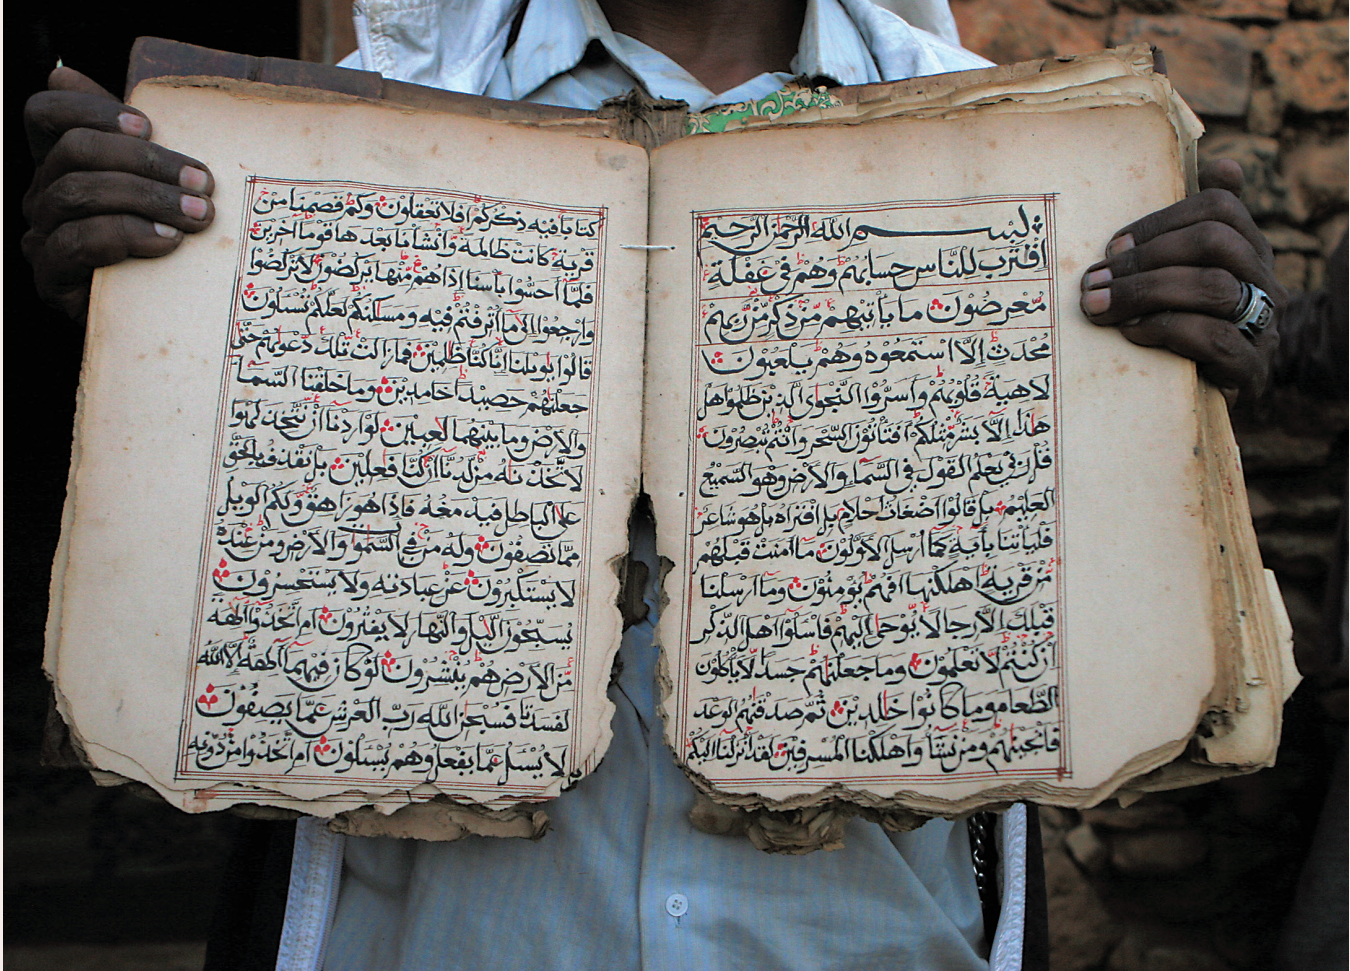 بسم الله الرحمن الرحيم
اقترب للناس حسابهم وهم في غفلة
معرضون ما يأتيهم من ذكر من ربهم
محدث إلا استمعوه وهم يلعبون
لاهية قلوبهم وأسروا النجوى الذين ظلموا هل
هذا إلا بشر مثلكم أفتأتون السحر وأنتم تبصرون
قل ربي يعلم القول في السماء والأرض وهو السميع
العليم بل قالوا أضغاث أحلام بل افتراه بل هو شاعر
فليأتنا بآية كما أرسل الأولون ما آمنت قبلهم
من قرية أهلكنها أفهم يؤمنون وما أرسلنا
قبلك إلا رجالا يوحى إليهم فاسئلوا أهل الذكر
إن كنتم لا تعلمون وما جعلنهم جسدا لا يأكلون
الطعام وما كانوا خالدين ثم صدقنهم الوعد
فأنجينهم ومن نشاء وأهلكنا المسرفين لقد أنزلنا إليكم
كتابا فيه ذكركم أفلا تعقلون وكم قصمنا من
قرية كانت ظالمة وأنشأنا بعدها قوما آخرين
فلما أحسوا بأسنا إذا هم منها يركضون لا تركضوا
وارجعوا إلى ما أترفتم فيه ومسكنكم لعلكم تسئلون
قالوا يويلنا إنا كنا ظلمين فما زالت تلك دعويهم حتى
جعلنهم حصيدا خامدين وما خلقنا السماء
والأرض وما بينهما لعبين لو أردنا أن نتخذ لهوا
لاتخذنه من لدنا إن كنا فعلين بل نقذف بالحق
على الباطل فيدمغه فإذا هو زاهق ولكم الويل
مما تصفون وله من في السموت والأرض ومن عنده
لا يستكبرون عن عبادته ولا يستحسرون
يسبحون الليل والنهار لا يفترون أم اتخذوا آلهة
من الأرض هم ينشرون لو كان فيهما آلهة إلا الله
لفسدتا فسبحن الله رب العرش عما يصفون
لا يسئل عما يفعل وهم يسئلون أم اتخذوا من دونه